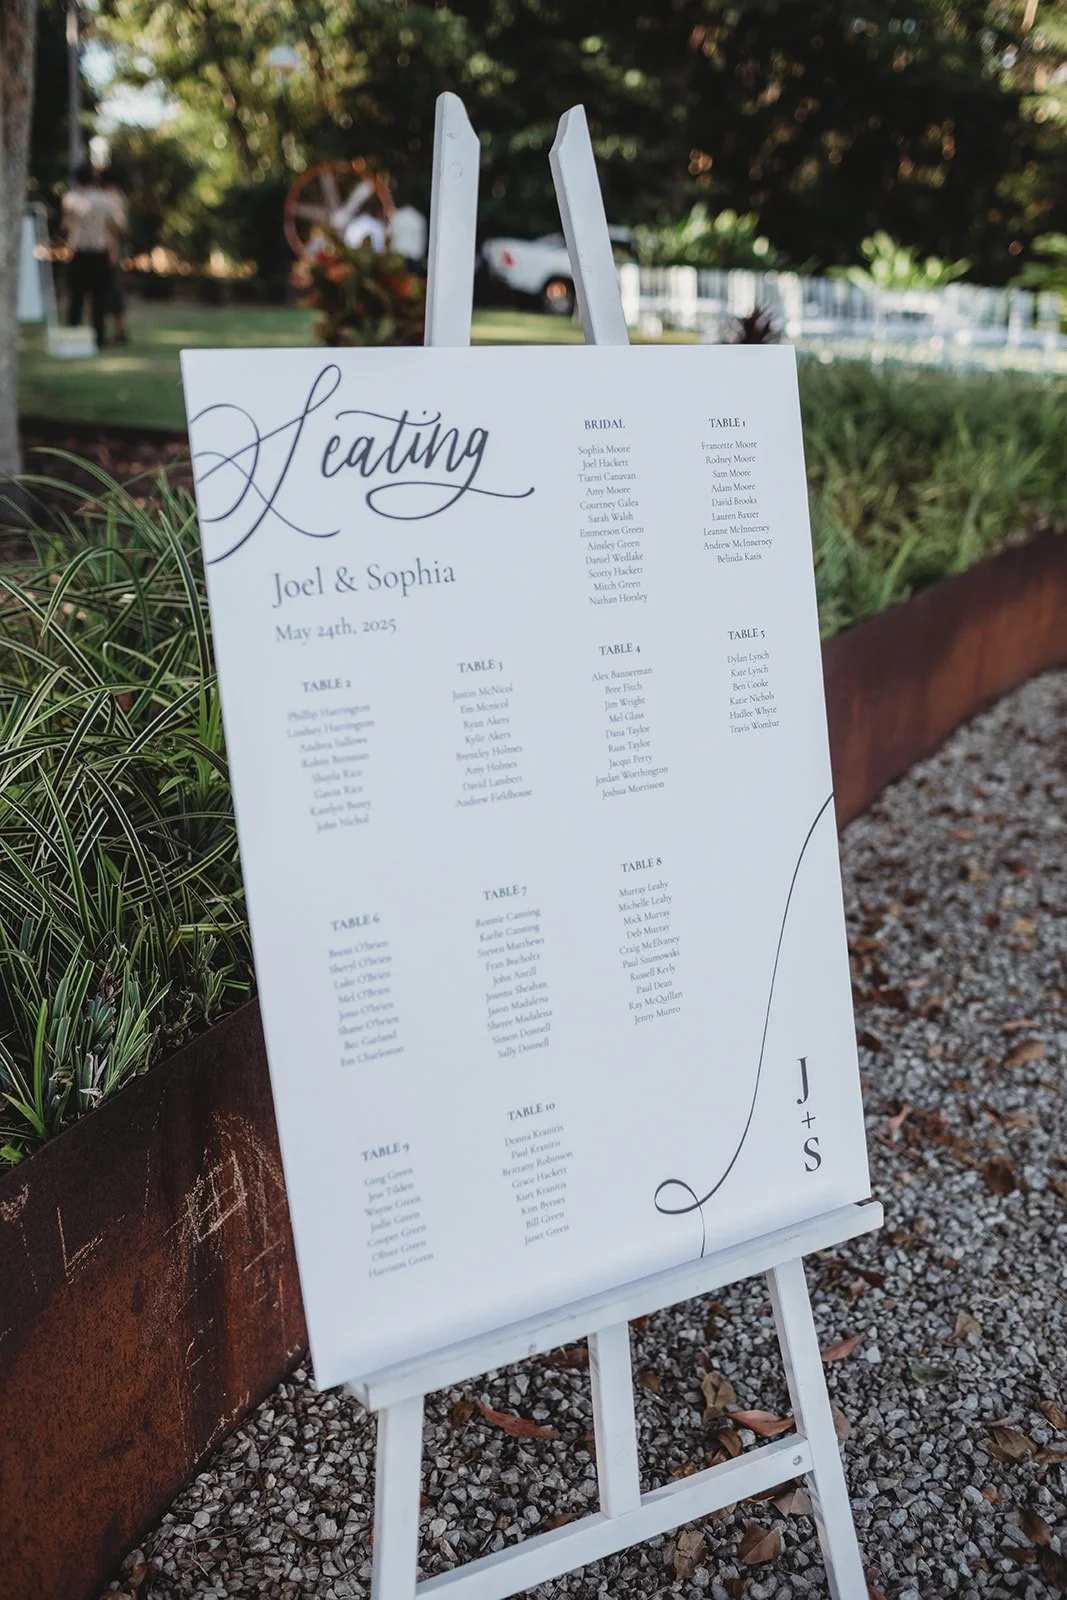 Seating
Joel & Sophia
May 24th, 2025
BRIDAL
Sophia Moore
Joel Hackett
Tiarni Canavan
Amy Moore
Courtney Galea
Sarah Walsh
Emmerson Green
Ainsley Green
Daniel Wedlake
Scotty Hackett
Mitch Green
Nathan Horsley
TABLE 1
Francette Moore
Rodney Moore
Sam Moore
Adam Moore
David Brooks
Lauren Baxter
Leanne McInnerney
Andrew McInnerney
Belinda Kasis
TABLE 2
Phillip Harrington
Lindsey Harrington
Andrea Sallows
Brennan
Shayla Rice
Gavin Rice
Katelyn Berry
John Nichol
TABLE 3
Justin McNicol
Em Mcnicol
Ryan Akers
Kylie Akers
Brenley Holmes
Amy Holmes
David Lambert
Andrew Fieldhouse
TABLE 4
Alex Bannerman
Bree Fitch
Jim Wright
Mel Glass
Dana Taylor
Russ Taylor
Jacqui Perry
Jordan Worthington
Joshua Morrisson
TABLE 5
Dylan Lynch
Kate Lynch
Ben Cooke
Katie Nichols
Hadlee Whyte
Travis Wombat
TABLE 6
Brent O'brien
Sheryl O'Brien
Luke O'Brien
Mel O'Brien
Jono O'brien
Shane O'brien
Bec Garland
Em Charleston
TABLE 7
Ronnie Canning
Karlie Canning
Steven Matthews
Fran Bucholtz
John Antill
Joanna Sheahan
Jason Madalena
Sheree Madalena
Simon Donnell
Sally Donnell
TABLE 8
Murray Leahy
Michelle Leahy
Mick Murray
Deb Murray
Craig McElvaney
Paul Szumowski
Russell Kerly
Paul Dean
Ray McQuillan
Jenny Munro
TABLE 9
Greg Green
Jess Tilden
Wayne Green
Jodie Green
Cooper Green
Oliver Green
Harrison Green
TABLE 10
Donna Kranitis
Paul Kranitis
Brittany Robinson
Grace Hackett
Kurt Kranitis
Kim Byrnes
Bill Green
Janet Green
J
+
S